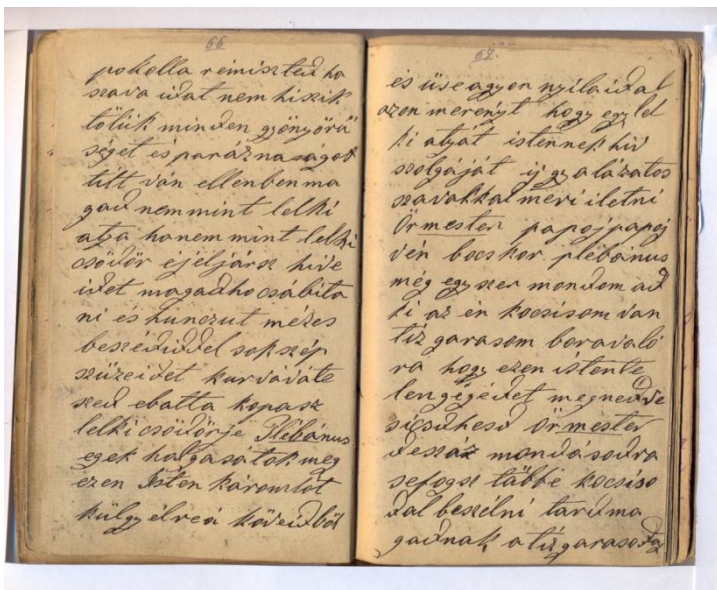 66
pokolla rémiszted ha
szava idat nem hiszik
tölük minden gyönyörü
séget és paráznaságot
tilt ván ellenben ma
gad nem mint lelki
atya hanem mint lelki
csödör éjeljársz hive
idet magadho csábita
ni és hunczut mézes
beszeididdel sok szép
szüzeidet kurvává te
szed ebatta kopasz
lelki csöidörje Plébánus
egek halgasatok meg
ezen Isten káromlót
küly élreá köveidböl
67.
és üse agyon nyilaidal
azon merényt hogy egy lel
ki atyát istennek hiv
szolgáját ij gyalázatos
szavakkal meri iletni
Örmester papoj papoj
vén bocskor plébánus
még egyszer mondom ad
ki az én kocsisom van
tiz garasom boravaló
ra hogy ezen istente
lengégédet megnedve
sicsdhesd Örmester
deszáz mondásodra
sefogsz többe kocsiso
dal beszélni tartd ma
gadnak a tiz garasodat